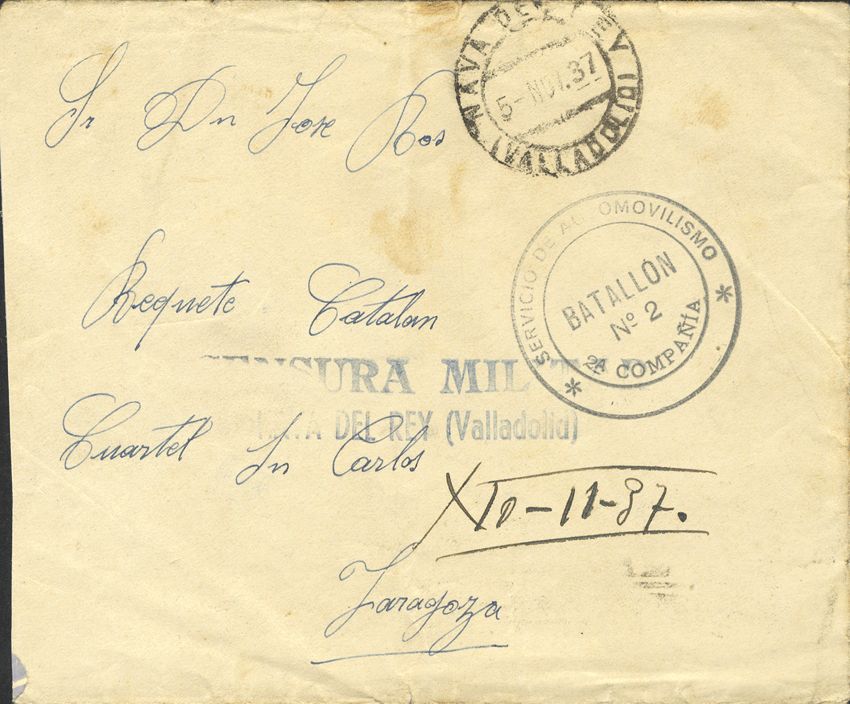 NAVA DEL REY
5-NOV.37
(VALLADOLID)
Sr Dn Jose Ros
SERVICIO DE AUTOMOVILISMO
BATALLÓN
Nº 2
2A COMPAÑIA
Requete Catalan
CENSURA MILITAR
NAVA DEL REY (Valladolid)
Cuartel Sn Carlos
11-37.
Zaragoza